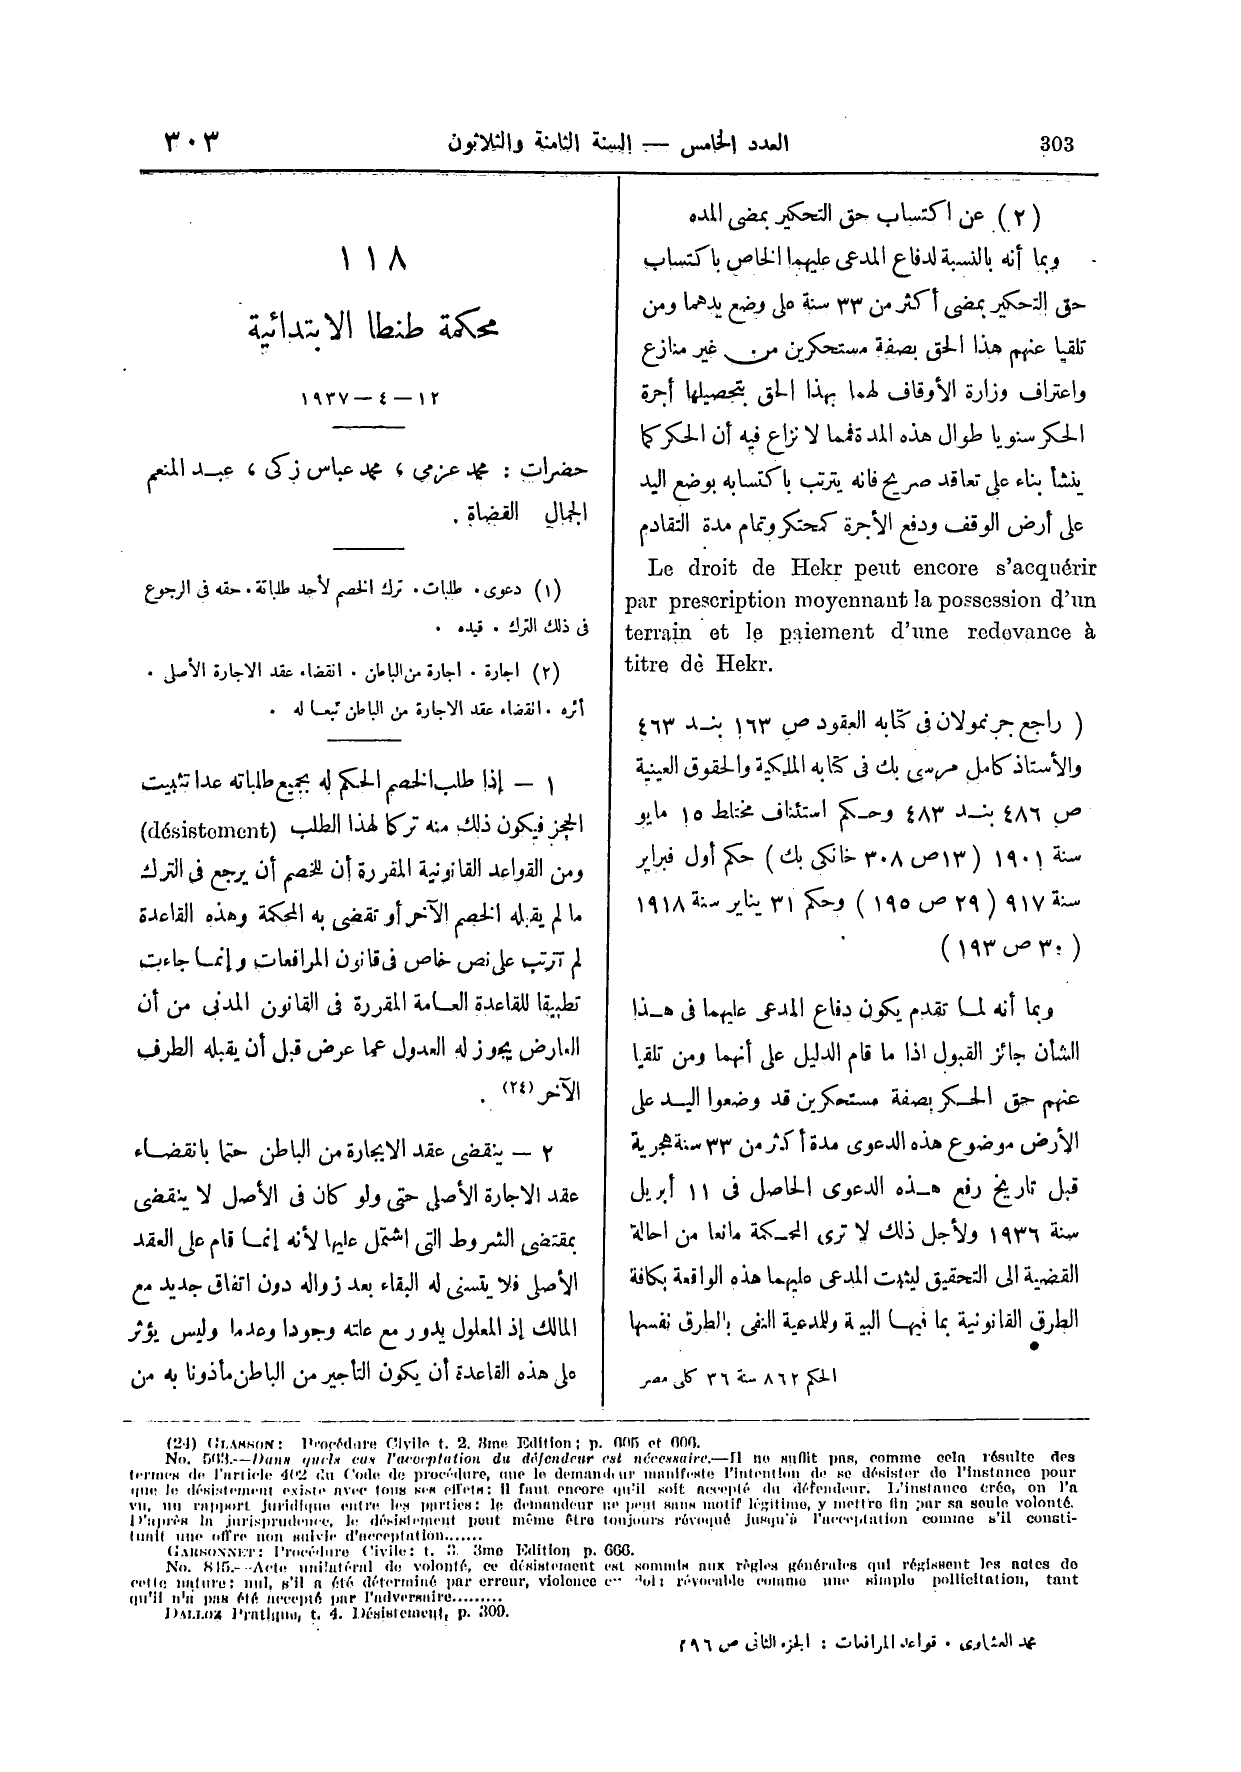 303
العدد الخامس — السنة الثامنة والثلاثون
٣٠٣
(٢) عن اكتساب حق التحكير بمضى المده
وبما أنه بالنسبة لدفاع المدعى عليهما الخاص باكتساب
حق التحكير بمضى أكثر من ٣٣ سنة على وضع يدهما ومن
تلقيا عنهم هذا الحق بصفة مستحكرين من غير منازع
واعتراف وزارة الأوقاف لهما بهذا الحق بتحصيلها أجرة
الحكر سنويا طوال هذه المدة فمما لا نزاع فيه أن الحكر كما
ينشأ بناء على تعاقد صريح فانه يترتب باكتسابه بوضع اليد
على أرض الوقف ودفع الأجرة كمحتكر وتمام مدة التقادم
Le droit de Hekr peut encore s'acquérir
par prescription moyennant la possession d'un
terrain et le paiement d'une redevance à
titre de Hekr.
( راجع جرنمولان فى كتابه العقود ص ١٦٣ بند ٤٦٣
والأستاذ كامل مرسى بك فى كتابه الملكية والحقوق العينية
ص ٤٨٦ بند ٤٨٣ وحكم استئناف مختلط ١٥ مايو
سنة ١٩٠١ ( ١٣ ص ٣٠٨ خانكى بك ) حكم أول فبراير
سنة ٩١٧ ( ٢٩ ص ١٩٥ ) وحكم ٣١ يناير سنة ١٩١٨
( ٣٠ ص ١٩٣ )
وبما أنه لما تقدم يكون دفاع المدعى عليهما فى هذا
الشأن جائز القبول اذا ما قام الدليل على أنهما ومن تلقيا
عنهم حق الحكر بصفة مستحكرين قد وضعوا اليد على
الأرض موضوع هذه الدعوى مدة أكثر من ٣٣ سنة هجرية
قبل تاريخ رفع هذه الدعوى الحاصل فى ١١ أبريل
سنة ١٩٣٦ ولأجل ذلك لا ترى المحكمة مانعا من احالة
القضية الى التحقيق ليثبت المدعى عليهما هذه الواقعة بكافة
الطرق القانونية بما فيها البينة وللمدعية النفى بالطرق نفسها
الحكم ٨٦٢ سنة ٣٦ كلى مصر
١١٨
محكمة طنطا الابتدائية
١٢ — ٤ — ١٩٣٧
حضرات : محمد عزمى ، محمد عباس زكى ، عبد المنعم
الجمال القضاة .
(١) دعوى . طلبات . ترك الخصم لأحد طلباتة . حقه فى الرجوع
فى ذلك الترك . قيده .
(٢) اجارة . اجارة من الباطن . انقضاء عقد الاجارة الأصلى .
أثره . انقضاء عقد الاجارة من الباطن تبعا له .
١ — إذا طلب الخصم الحكم له بجميع طلباته عدا تثبيت
الحجز فيكون ذلك منه تركا لهذا الطلب (désistement)
ومن القواعد القانونية المقررة أن للخصم أن يرجع فى الترك
ما لم يقبله الخصم الآخر أو تقضى به المحكمة وهذه القاعدة
لم تترتب على نص خاص فى قانون المرافعات وإنما جاءت
تطبيقا للقاعدة العامة المقررة فى القانون المدنى من أن
العارض يجوز له العدول عما عرض قبل أن يقبله الطرف
الآخر (٢٤) .
٢ — ينقضى عقد الايجارة من الباطن حتما بانقضاء
عقد الاجارة الأصلى حتى ولو كان فى الأصل لا ينقضى
بمقتضى الشروط التى اشتمل عليها لأنه إنما قام على العقد
الأصلى فلا يتسنى له البقاء بعد زواله دون اتفاق جديد مع
المالك إذ المعلول يدور مع علته وجودا وعدما وليس يؤثر
على هذه القاعدة أن يكون التأجير من الباطن مأذونا به من
(24) GLASSON: Procédure Civile t. 2. 3me Edition; p. 605 et 606.
No. 503.—Dans quels cas l'acceptation du défendeur est nécessaire.—Il ne suffit pas, comme cela résulte des
termes de l'article 402 du Code de procédure, que le demandeur manifeste l'intention de se désister de l'instance pour
que le désistement existe avec tous ses effets: il faut encore qu'il soit accepté du défendeur. L'instance crée, on l'a
vu, un rapport juridique entre les parties: le demandeur ne peut sans motif légitime, y mettre fin par sa seule volonté.
D'après la jurisprudence, le désistement peut même être toujours révoqué jusqu'à l'acceptation comme s'il consti-
tuait une offre non suivie d'acceptation.......
GARSONNET: Procédure Civile: t. 3. 3me Edition p. 666.
No. 815.—Acte unilatéral de volonté, ce désistement est soumis aux règles générales qui régissent les actes de
cette nature: nul, s'il a été déterminé par erreur, violence dol: révocable comme une simple pollicitation, tant
qu'il n'a pas été accepté par l'adversaire.........
DALLOZ Pratique, t. 4. Désistement, p. 309.
محمد العشماوى . قواعد المرافعات : الجزء الثانى ص ٢٩٦